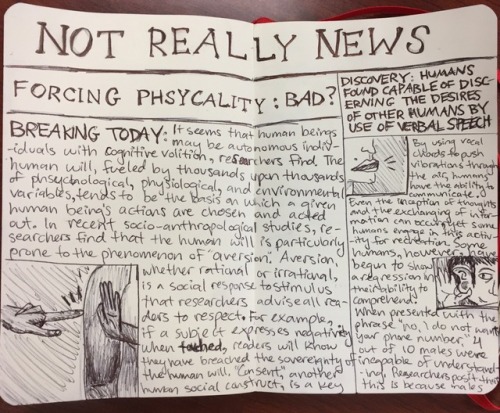 NOT REALLY NEWS
FORCING PHSYCALITY: BAD?
BREAKING TODAY: It seems that human beings
may be autonomous indiv-
iduals with cognitive volition, researchers find. The
human will, fueled by thousands upon thousands
of phsuchological, physiological, and environmental
variables, tends to be the basis on which a given
human being's actions are chosen and acted
out. In recent socio-anthropological studies, re-
searchers find that the human will is particularly
prone to the phenomenon of "aversion". Aversion,
whether rational or irrational,
is a social response to stimulus
that researchers advise all rea-
ders to respect. For example,
if a subject expresses negativity
when touched, readers will know
they have breached the sovereignty of
the human will. "Consent", another
human social construct, is a key
DISCOVERY: HUMANS
FOUND CAPABLE OF DISC-
ERNING THE DESIRES
OF OTHER HUMANS BY
USE OF VERBAL SPEECH
By using vocal
chords to push
vibrations through
the air, humans
have the ability to
communicate.
Even the inception of thoughts
and the exchanging of infor-
mation can occur, yet some
humans engage in this activ-
ity for recreation. Some
humans, however, have
begun to show
a regression in
their ability to
comprehend.
When presented with the
phrase "no, I do not want
your phone number," 4
out of 10 males were
incapable of understand-
ing. Researchers posit that
this is because males